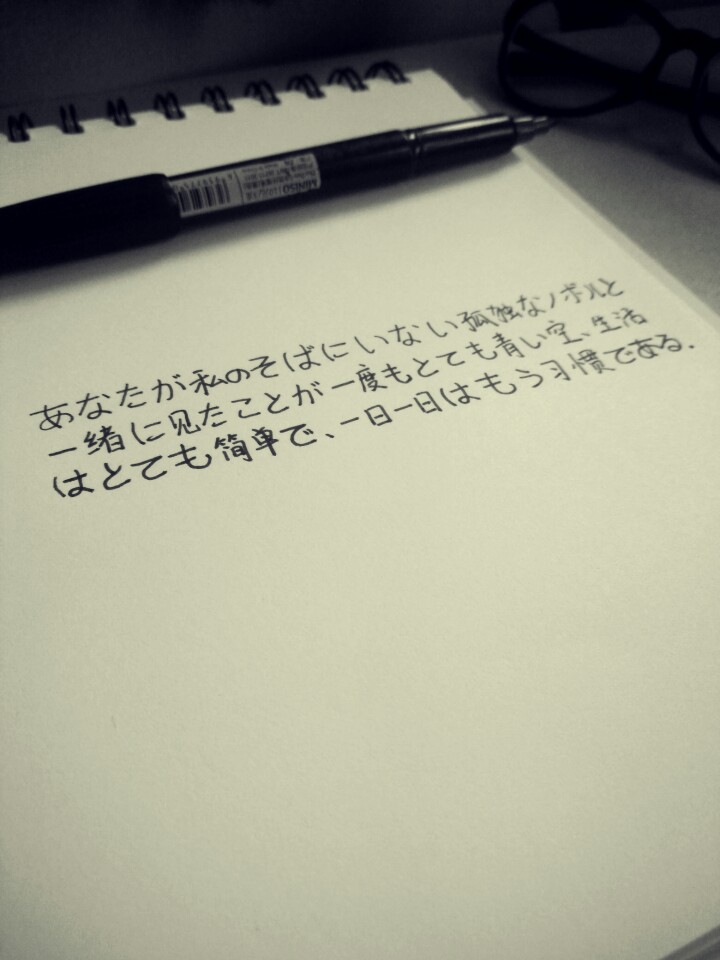 MINISO
あなたが私のそばにいない孤独なノボルと
一緒に见たことが一度もとても青い空、生活
はとても简单で、一日一日はもう习慣である.